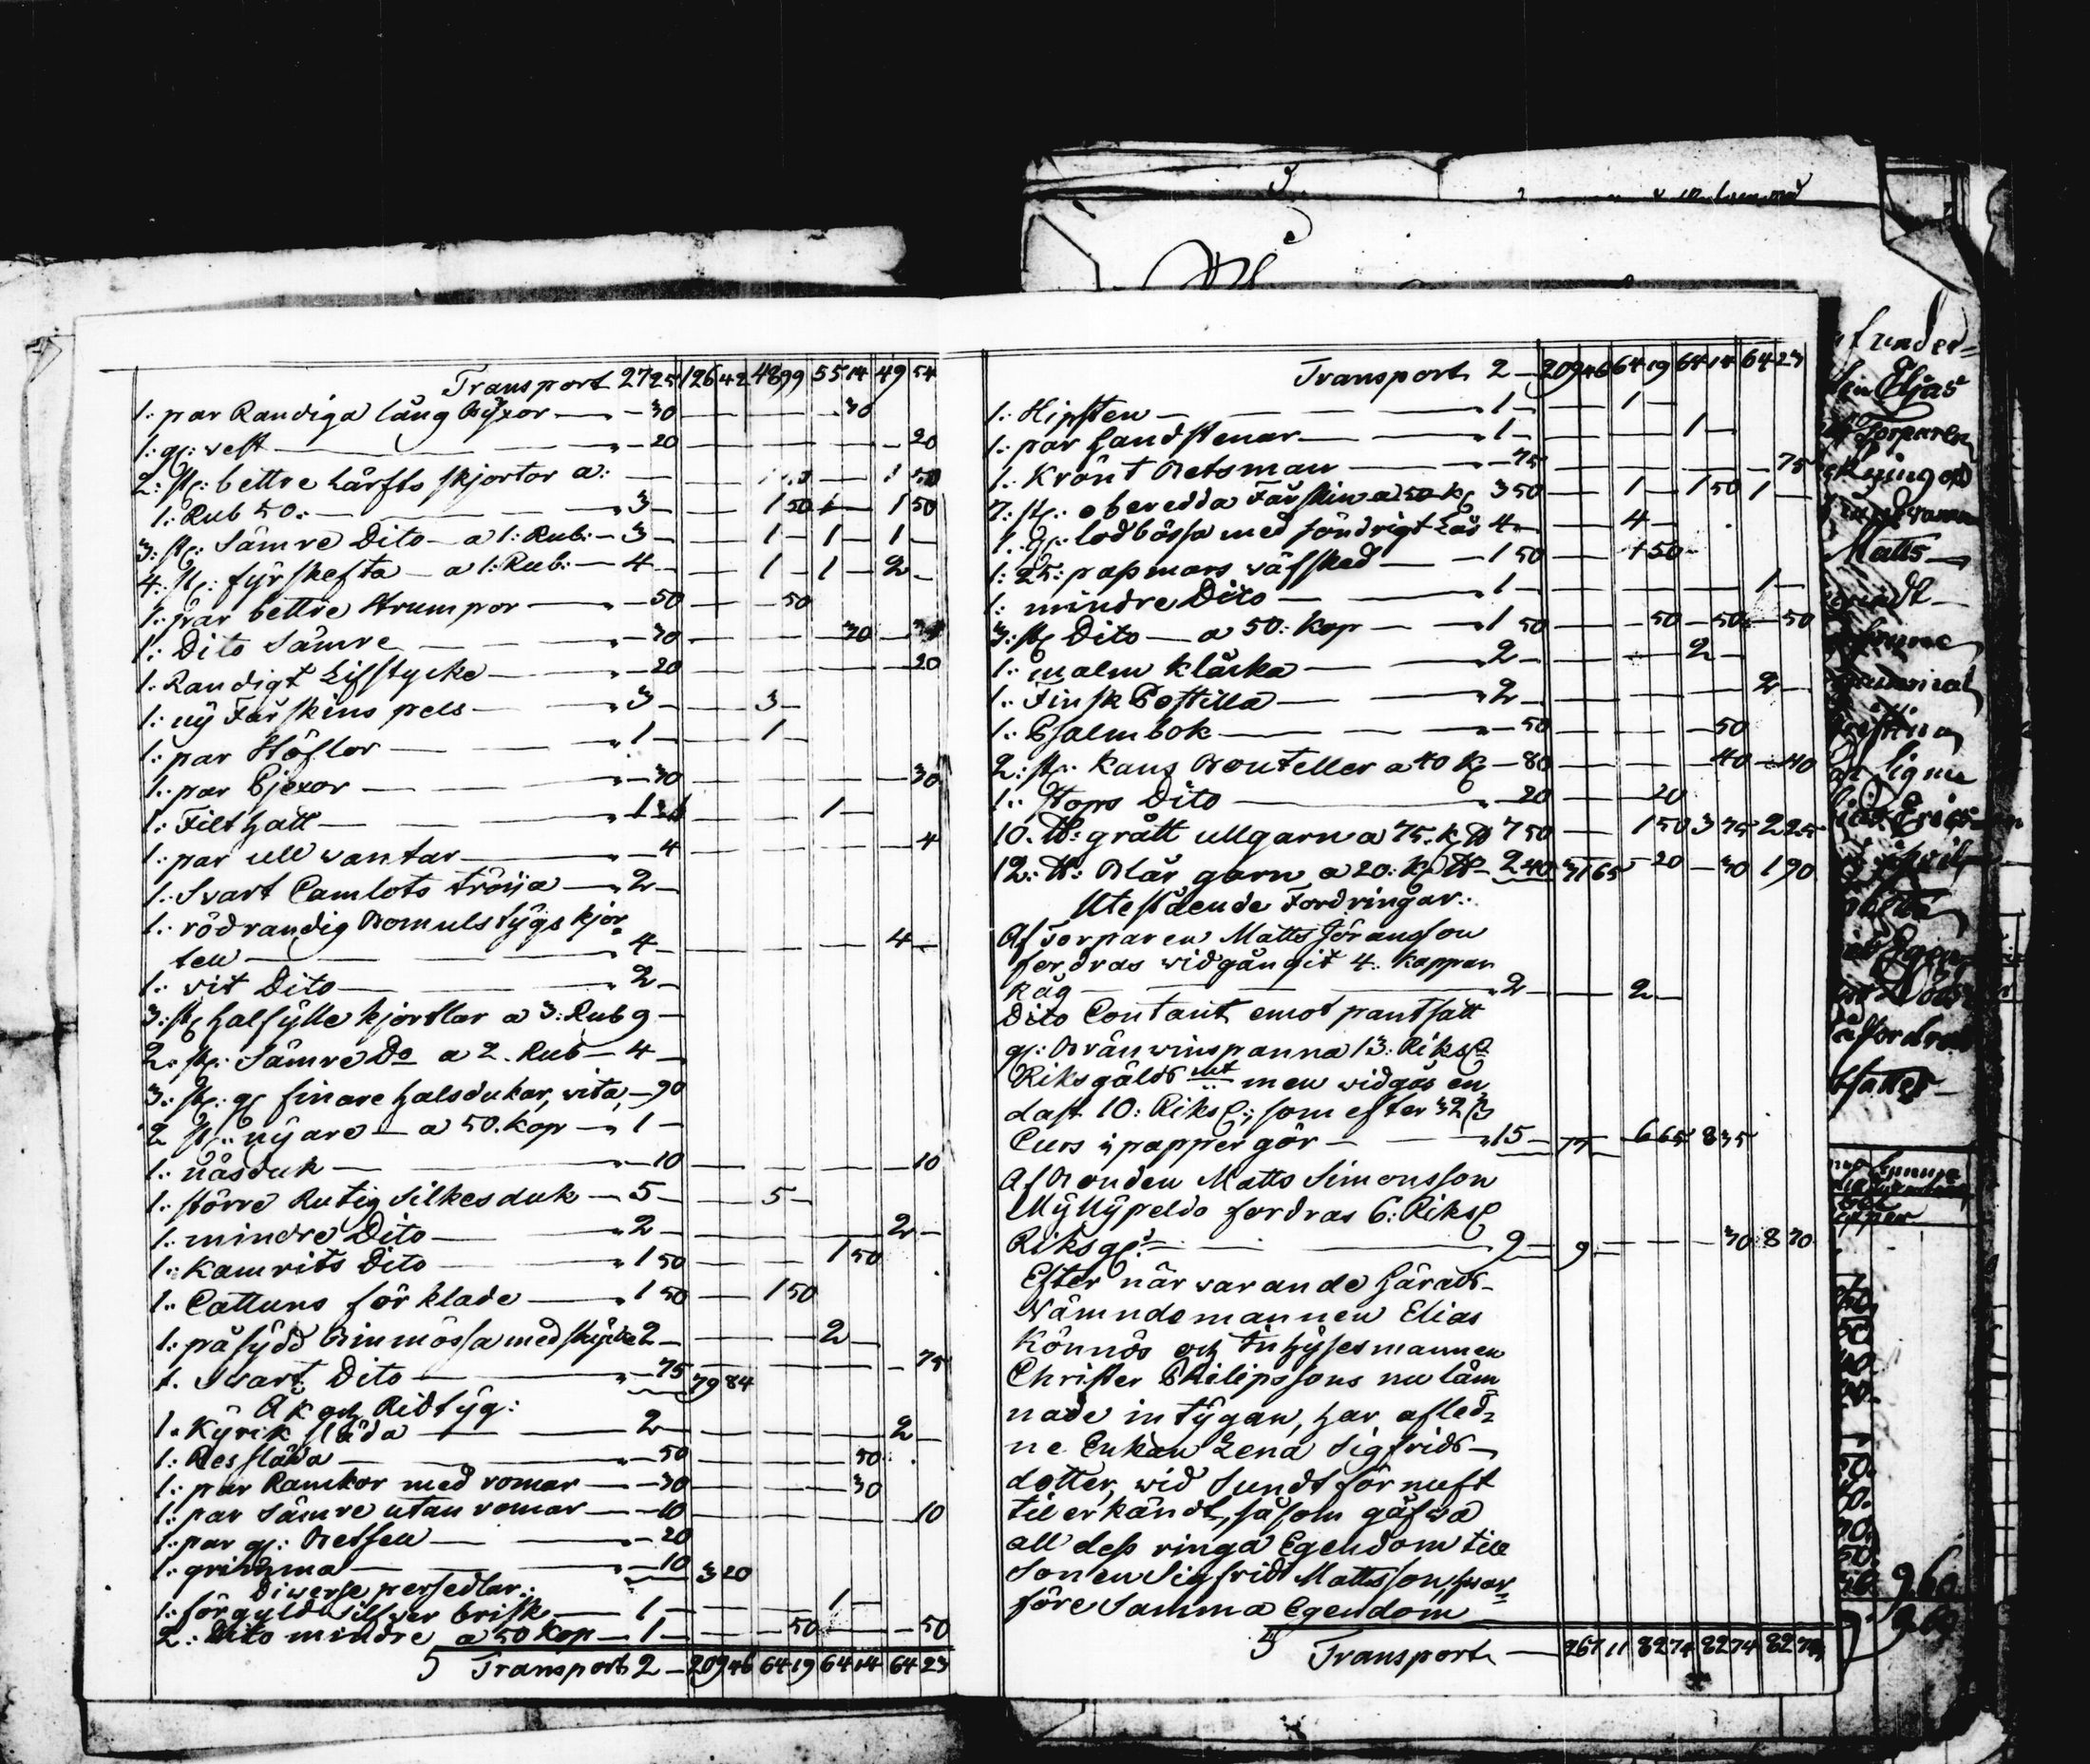 Transport 27 25 126 42 48 99 55 14 49 54
1: par Randiga lång Byxor — 30 — 30
1: gl: vest — 20 — 20
2: st: bettre Lärfts skjortor a:
1: Rub 50: — 3 — 1 50 1 — 1 50
3: st: Sämre Dito — a 1: Rub: — 3 — 1 — 1 — 1 —
4: st: fyrskefta — a 1: Rub: — 4 — 1 — 1 — 2 —
1: par bettre Strumpor — 50 — 50
1: Dito Sämre — 30 — 30
1: Randigt Lifstycke — 20 — 20
1: ny Fårskins pels — 3 — 3 —
1: par Stöflor — 1 — 1 —
1: par Pjexor — 30 — 30
1: Filt hatt — 1 — 1 —
1: par ull vantar — 4 — 4
1: Svart Camlots tröija — 2 —
1: rödrandig Bomulstygs kjor
tel — 4 — 4 —
1: vit Dito — 2 —
3: st halfylle kjortlar a 3: Rub 9 —
2: st: Sämre Do a 2. Rub — 4 —
3: st: gl finare halsdukar, vita, — 90
2 st: nyare — a 50. Kop — 1 —
1: näsduk — 10 — 10
1: större Rutig Silkesduk — 5 — 5 —
1: mindre Dito — 2 — 2 —
1: Kamrits Dito — 1 50 — 1 50
1: Cattuns förklade — 1 50 — 1 50
1: påsydd Binmössa med stycke 2 — 2 —
1. Svart Dito — 75 79 84 — 75
Åk och Ridtyg:
1. Kyrik släda — 2 — 2 —
1: Ressläda — 50 — 50
1: par Rankor med romar — 30 — 30
1: par Sämre utan romar — 10 — 10
1: par gl: Betsell — 20
1: grimma — 10 3 20
Diverse persedlar:
1: förgyld Silfver brisk — 1 — 1 —
2: Dito mindre a 50 Kop — 1 — 50 — 50
5 Transport 2 — 209 46 64 19 64 14 64 23
Transport 2 — 209 46 64 19 64 14 64 23
1: Hipsten — 1 — 1 —
1: par handstenar — 1 — 1 —
1: Krönt Betsman — 75 — 75
7: st: oberedda Fårskin a 50 K 3 50 — 1 — 1 50 1 —
1: gl: lodbössa med söndrigt Lås 4 — 4 —
1: 25: pasmars väfsked — 1 50 — 1 50
1: mindre Dito — 1 — 1 —
3: st Dito — a 50: Kop — 1 50 — 50 — 50 — 50
1: malm kläcka — 2 — 2 —
1: Finsk Postilla — 2 — 2 —
1: Psalmbok — 50 — 50
2: st: Kans Bouteller a 40 K — 80 — 40 — 40
1: Stops Dito — 20 — 20
10. ℔: grått ullgarn a 75. K ℔ 7 50 — 1 50 3 75 2 25
12: ℔: Blår garn a 20: K ℔ 2 40 31 65 — 20 — 30 1 90
Utestående Fordringar:
Af Torparen Matts Göransson
fordras widgångit 4: Kappar
Råg — 2 — 2 —
Dito Contant emot pantsatt
gl: Bränwinspanna 13: Riks
Riksgälds men widgås en
dast 10: Riks; som efter 32 ß
Curs i papper gör — 15 — 17 — 6 65 8 35
Af Bonden Matts Simonsson
Myllypeldo fordras 6: Riks
Riksgls — 9 — 9 — 30 8 70
Efter närwarande Härads-
Nämndemannen Elias
Könnös och Inhysesmannen
Christer Philipssons nu läm
nade intygan, har afled-
ne Enkan Lena Sigfrids
dotter, wid Sundt förnuft
tilerkändt, såsom gåfwa
all des ringa Egendom till
Sonen Sigfrid Mattsson, hwar
före Samma Egendom
5 Transport — 267 11 82 74 82 74 82 74
Elias
Torparen
Matts
fordran
960
960